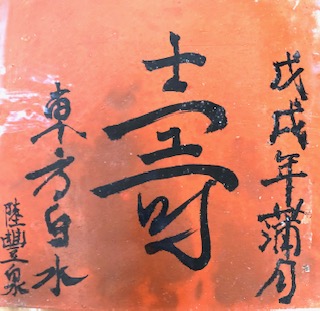 戊戌年蒲月
壽
東方白水
陸豐泉